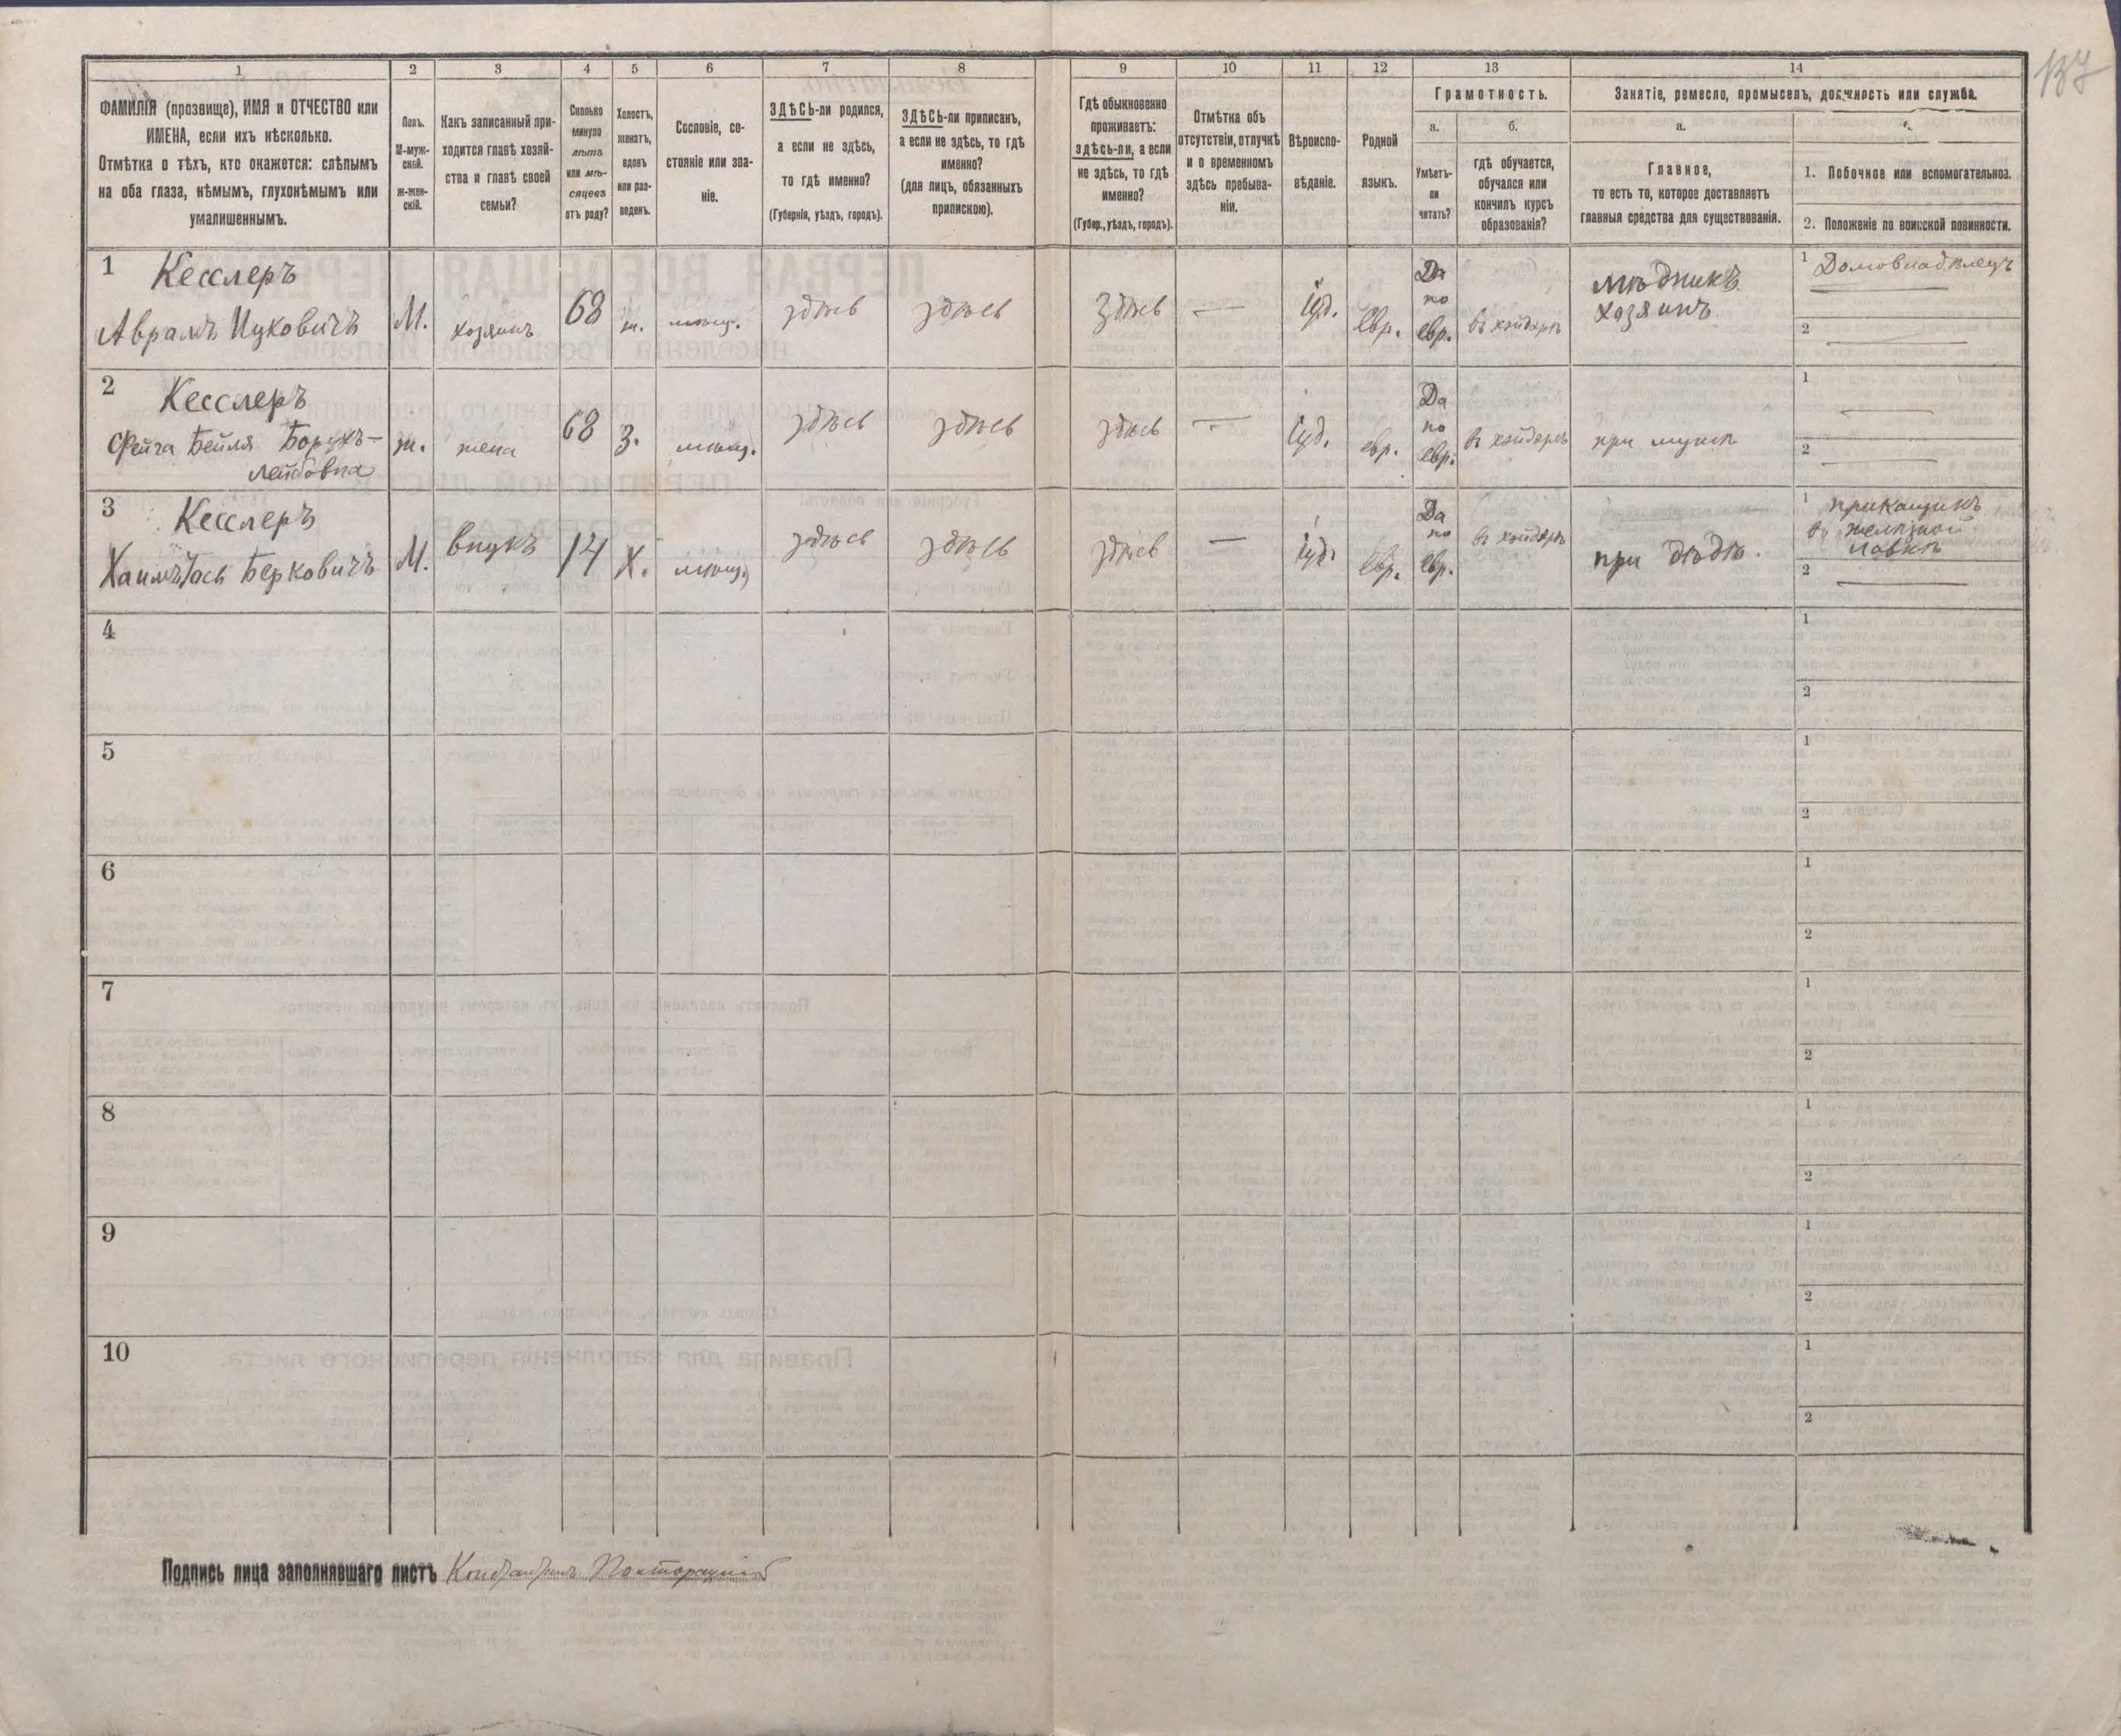 137
1
2
3
4
5
6
7
8
9
10
11
12
13
14
ФАМИЛІЯ (прозвище), ИМЯ и ОТЧЕСТВО или
ИМЕНА, если ихъ нѣсколько.
Отмѣтка о тѣхъ, кто окажется: слѣпымъ
на оба глаза, нѣмымъ, глухонѣмымъ или
умалишеннымъ.
Полъ.
М-муж-
ской.
Ж-жен-
скій.
Какъ записанный при-
ходится главѣ хозяй-
ства и главѣ своей
семьи?
Сколько
минуло
лѣтъ
или мѣ-
сяцевъ
отъ роду?
Холостъ,
женатъ,
вдовъ
или раз-
веденъ.
Сословіе, со-
стояніе или зва-
ніе.
ЗДѢСЬ-ли родился,
а если не здѣсь,
то гдѣ именно?
(Губернія, уѣздъ, городъ).
ЗДѢСЬ-ли приписанъ,
а если не здѣсь, то гдѣ
именно?
(для лицъ, обязанныхъ
припискою).
Гдѣ обыкновенно
проживаетъ:
здѣсь-ли, а если
не здѣсь, то гдѣ
именно?
(Губер., уѣздъ, городъ).
Отмѣтка объ
отсутствіи, отлучкѣ
и о временномъ
здѣсь пребыва-
ніи.
Вѣроиспо-
вѣданіе.
Родной
языкъ.
Грамотность.
а.
Умѣетъ-
ли
читать?
б.
гдѣ обучается,
обучался или
кончилъ курсъ
образованія?
Занятіе, ремесло, промыселъ, должность или служба.
а.
Главное,
то есть то, которое доставляетъ
главныя средства для существованія.
1. Побочное или вспомогательноз.
2. Положеніе по воинской повинности.
1 Кесслеръ
Аврамъ Ицковичъ
М.
хозяинъ
68
ж.
мѣщ.
здѣсь
здѣсь
Здѣсь
—
Іуд.
Евр.
Да
по
евр.
въ хэйдерѣ
мѣдникъ
хозяинъ
1 Домовладѣлецъ
2 —
2 Кесслеръ
Фейга Бейля Борухъ-
Лейбовна
ж.
жена
68
З.
мѣщ.
здѣсь
здѣсь
здѣсь
—
Іуд.
евр.
Да
по
евр.
въ хэйдерѣ
при мужѣ
1 —
2 —
3 Кесслеръ
Хаимъ Іось Берковичъ
М.
внукъ
14
Х.
мѣщ.
здѣсь
здѣсь
здѣсь
—
Іуд.
Евр.
Да
по
евр.
въ хэйдерѣ
при дѣдѣ.
1 прикащикъ
въ желѣзной
лавкѣ
2 —
4
1
2
5
1
2
6
1
2
7
1
2
8
1
2
9
1
2
10
1
2
Подпись лица заполнявшаго листъ Константинъ